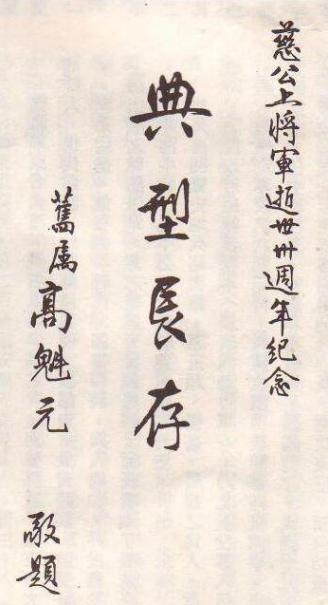 慈公上將軍逝世卅週年紀念
典型長存
舊属高魁元
敬題